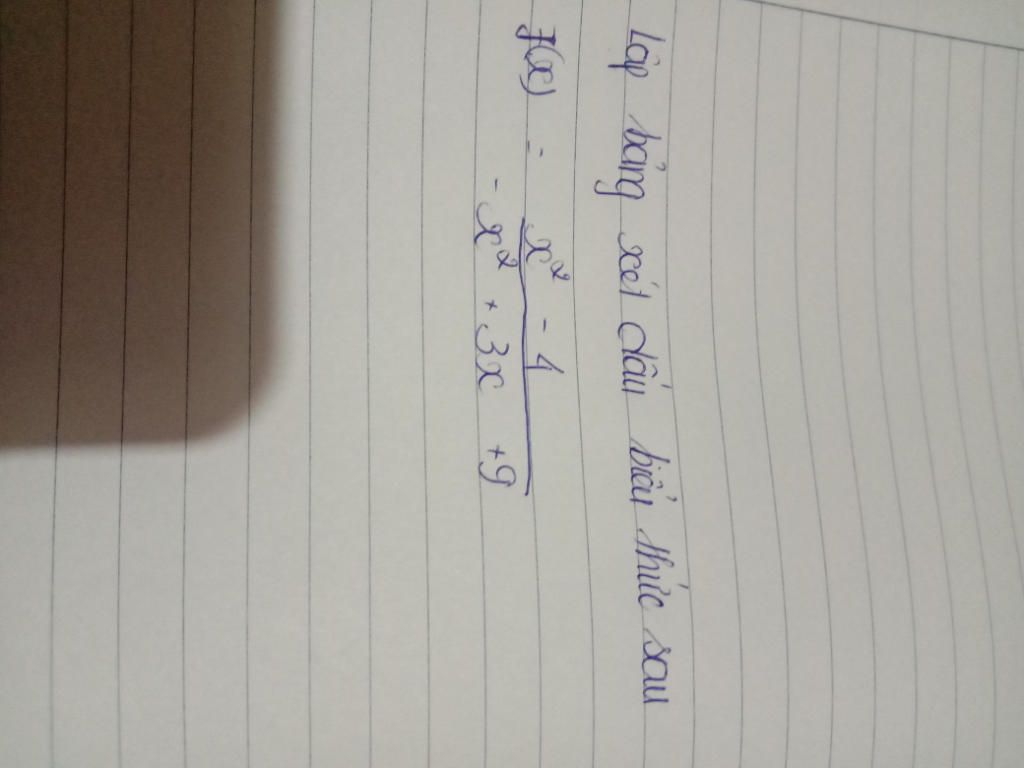 Lập bảng xét dấu biểu thức sau
f(x) = x² - 4
- x² + 3x + 9